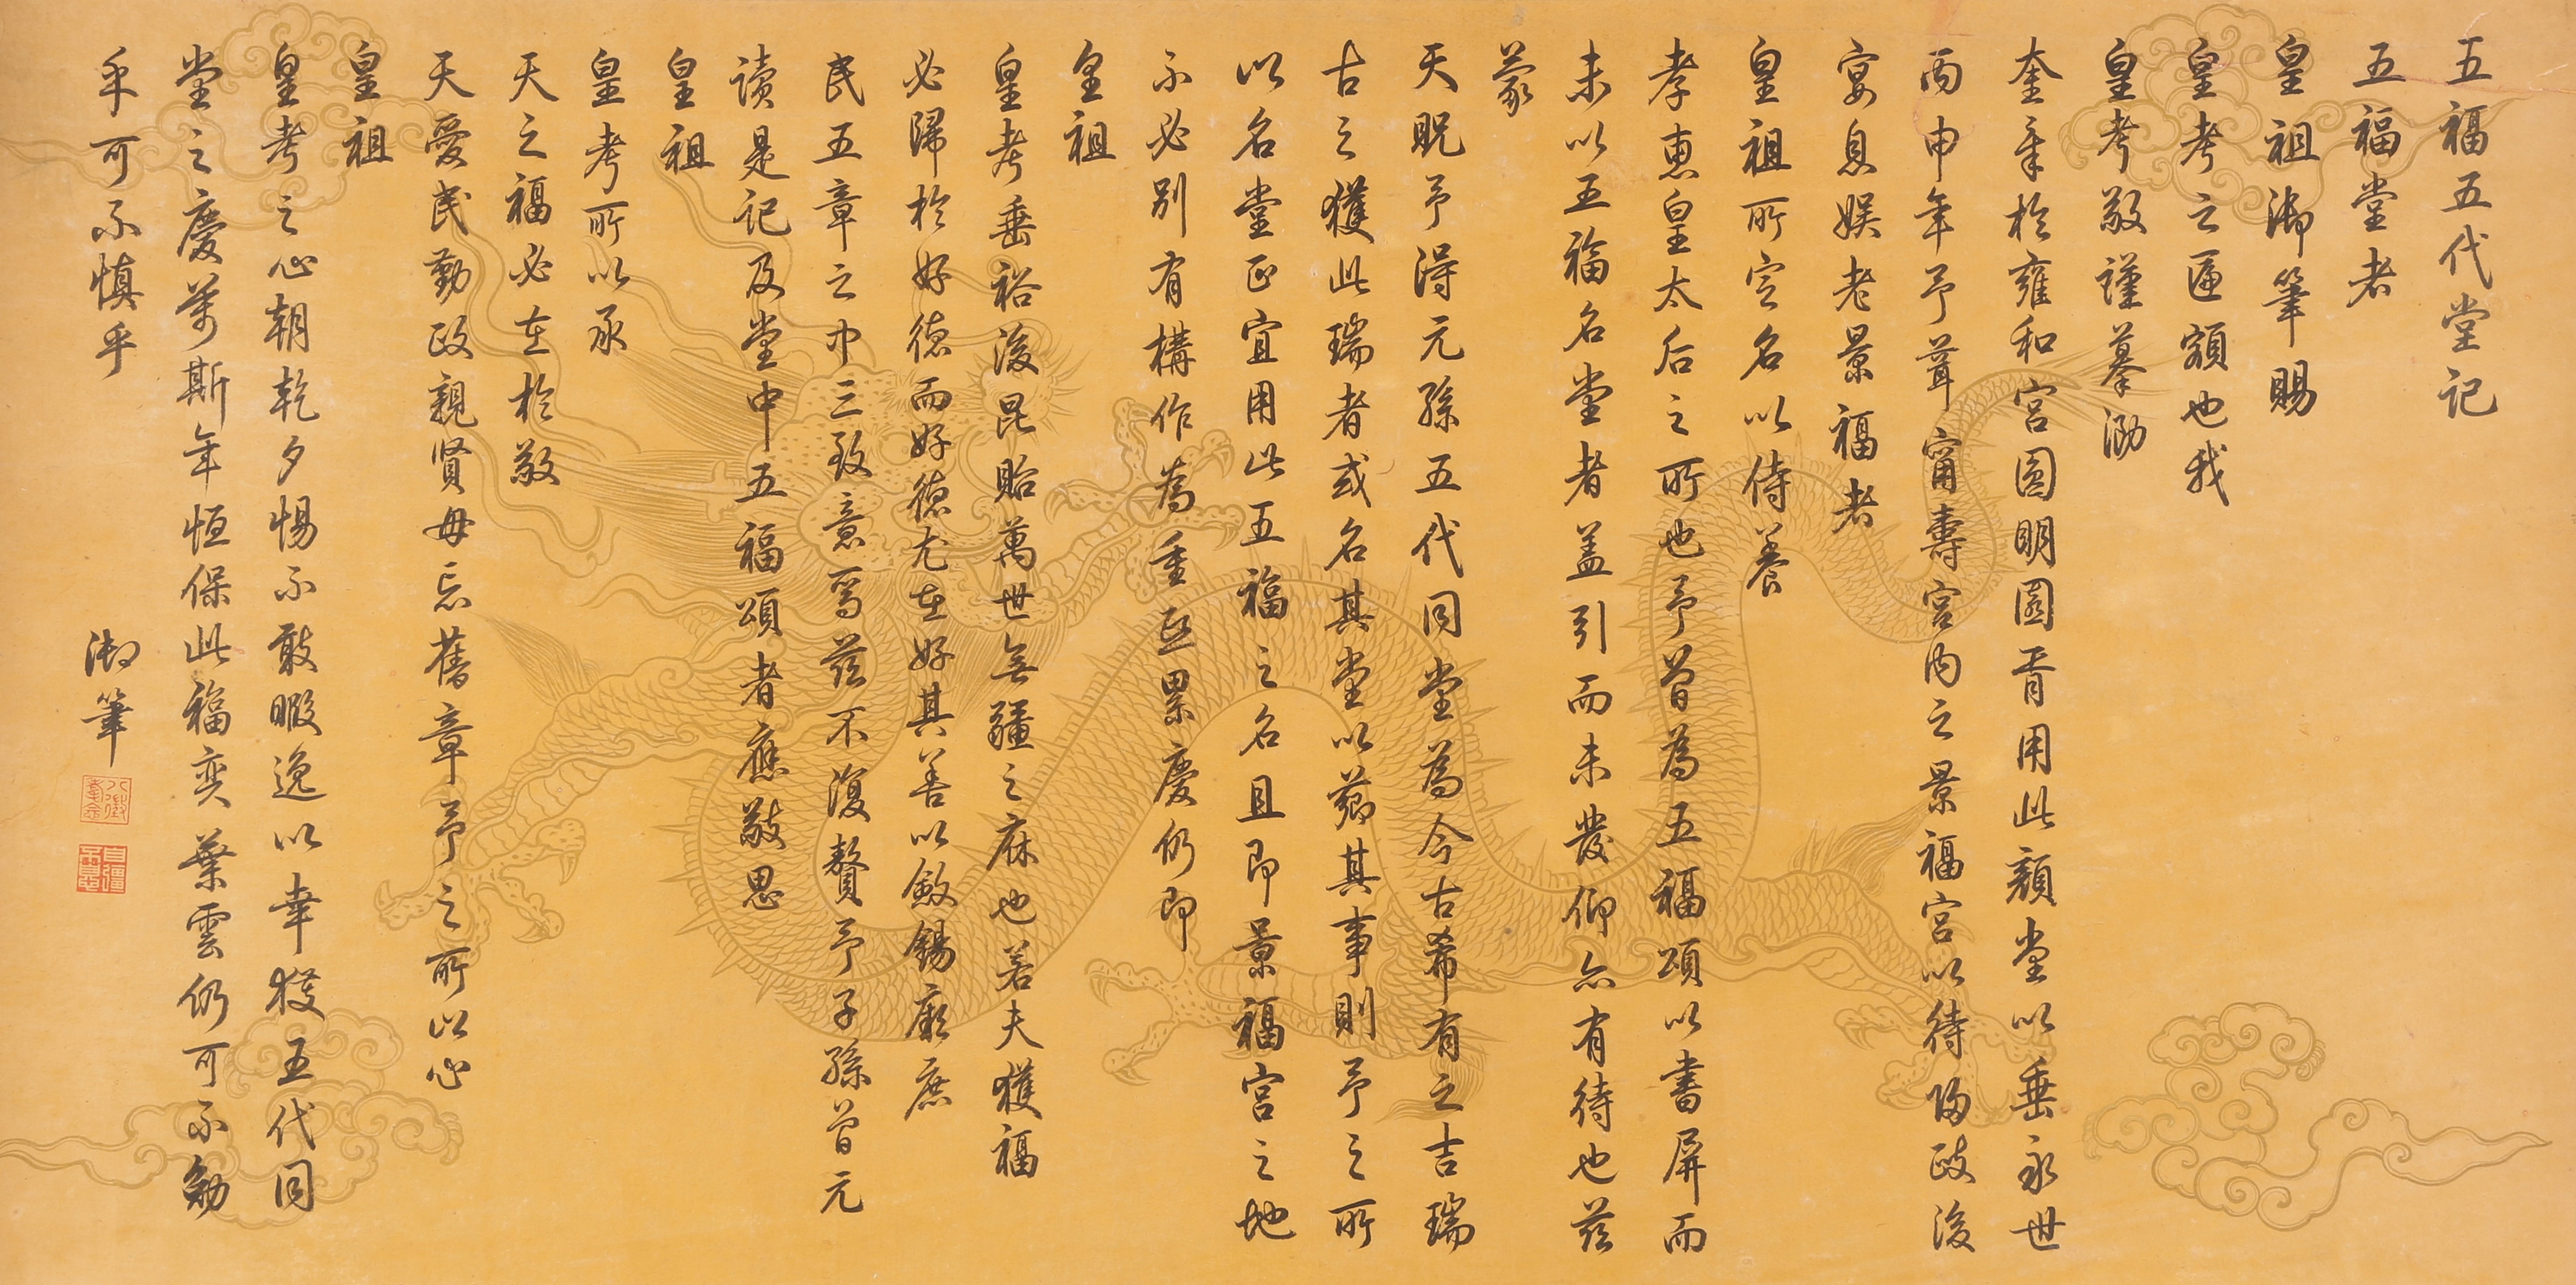 五福五代堂記
五福堂者
皇祖御筆賜
皇考之匾額也我
皇考敬謹摹泐
奎章於雍和宮圓明園胥用此顏堂以垂永世
丙申年予葺甯壽宮內之景福宮以待歸政後
宴息娛老景福者
皇祖所定名以侍養
孝惠皇太后之所也予曾為五福頌以書屏而
未以五福名堂者蓋引而未發仰亦有待也茲
蒙
天貺予得元孫五代同堂為今古希有之吉瑞
古之獲此瑞者或名其堂以藐其事則予之所
以名堂正宜用此五福之名且即景福宮之地
不必別有構作為重熙累慶仍即
皇祖
皇考垂裕後昆貽萬世無疆之庥也若夫獲福
必歸於好德而好德尤在好其善以斂錫厥庶
民五章之中三致意焉茲不復贅予子孫曾元
讀是記及堂中五福頌者應敬思
皇祖
皇考所以承
天之福必在於敬
天愛民勤政親賢毋忘舊章予之所以心
皇祖
皇考之心朝乾夕惕不敢暇逸以幸獲五代同
堂之慶萬斯年恒保此福奕葉雲仍可不勉
乎可不慎乎
御筆
八徵耄念
自彊不息